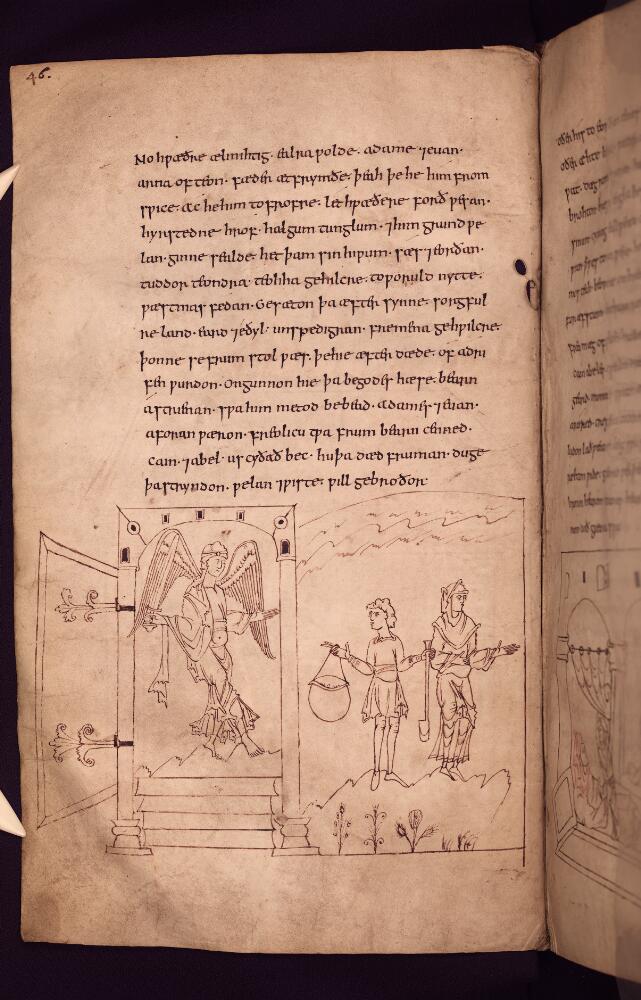 46.
No hƿæðre ælmihtig · ealra ƿolde · adame · ⁊euan ·
arna ofteon · fæder æt frymðe · þeah þe he him from
sƿice · ac he him to frofre · let hƿæðere forð ƿesan ·
hyrstedne hrof · halgum tunglum · ⁊him grund ƿe
lan · ginne sealde · het þam sin hiƿum · sæs ⁊eorðan ·
tuddor teondra · teohha gehƿilcre · to ƿoruld nytte ·
ƿæstmas fedan · Gesæton þa æfter synne · sorgful
re land · eard ⁊eðyl · unspedigran · fremena gehƿilcre ·
þonne se frum stol ƿæs · þe hie æfter dæde · of adri
fen ƿurdon · Ongunnon hie þa be godes hæse · bearn
astrienan · sƿa him metod bebead · Adames · ⁊euan ·
aforan ƿæron · freolicu tƿa frum bearn cenned ·
cain · ⁊abel · us cyðað bec · hu þa dæd fruman · duge
þa stryndon · ƿelan ⁊ƿiste · ƿill gebroðor ·